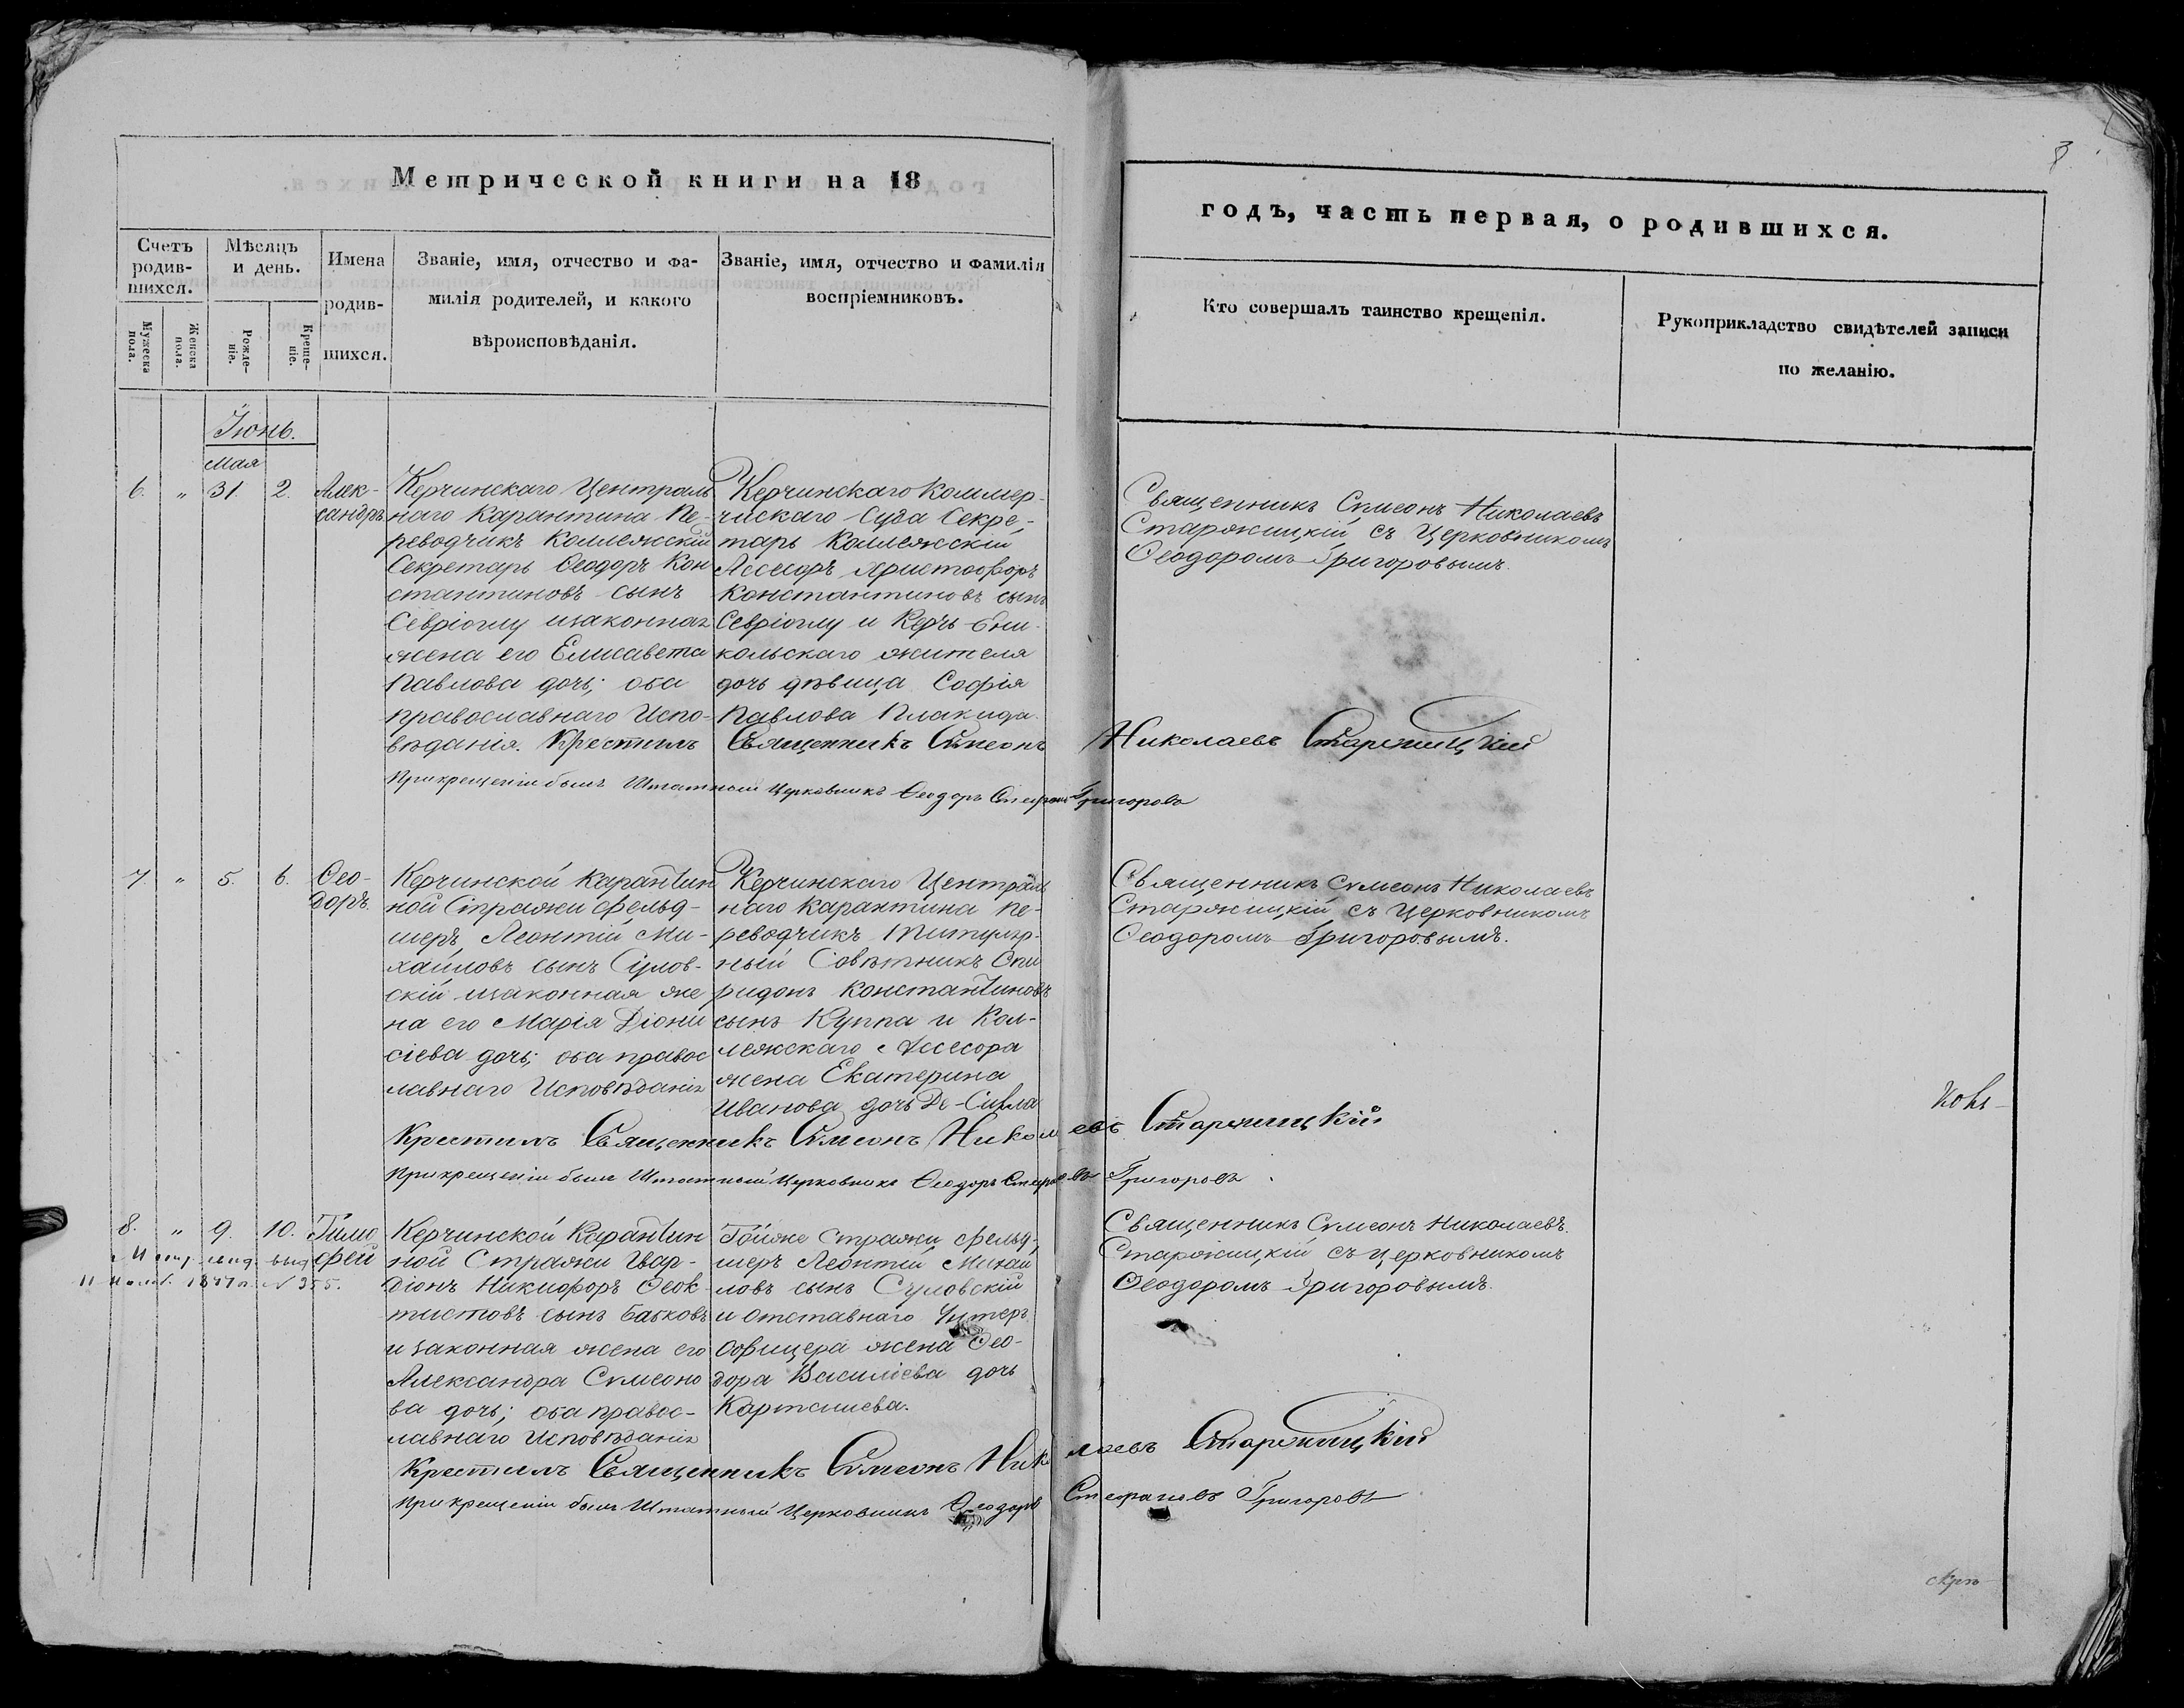 Метрической книги на 18
годъ, часть первая, о родившихся.
3
Счетъ родив-шихся.
Мужеска пола.
Женска пола.
Мѣсяцъ и день.
Рожде-ніе.
Креще-ніе.
Имена
родив-
шихся.
Званіе, имя, отчество и фа-
милія родителей, и какого
вѣроисповѣданія.
Званіе, имя, отчество и фамилія
воспріемниковъ.
Кто совершалъ таинство крещенія.
Рукоприкладство свидѣтелей записи
по желанію.
Іюнь.
Мая
6. " 31. 2.
Алек-
сандръ
Керчинскаго Централь
наго Карантина Пе-
реводчикъ Коллежскій
Секретарь Ѳеодоръ Кон
стантиновъ сынъ
Севріоглу изаконная
жена его Елисавета
Павлова дочь; оба
православнаго Испо-
вѣданія.
Керчинскаго Коммер-
ческаго Суда Секре-
тарь Коллежскій
Ассесоръ Христофоръ
Константиновъ сынъ
Севріоглу и Керчь-Ени-
кольскаго жителя
дочь дѣвица Софія
Павлова Плакида.
Священникъ Сѵмеонъ Николаевъ
Старожицкій съ Церковникомъ
Ѳеодоромъ Григоровымъ.
Крестилъ Священникъ Сѵмеонъ Николаевъ Старожицкій
При крещеніи былъ Штатный Церковникъ Ѳеодоръ Стефановъ Григоровъ
7. " 5. 6.
Ѳео-
доръ.
Керчинской Карантин
ной Стражи Фельд-
шеръ, Леонтій Ми-
хайловъ сынъ Сулов-
скій изаконная же
на его Марія Діони
сіева дочь; оба правос
лавнаго Исповѣданія
Керчинскаго Централь
наго Карантина Пе-
реводчикъ Титуляр-
ный Совѣтникъ Спи
ридонъ Константиновъ
сынъ Куппа и Кол-
лежскаго Ассесора
жена Екатерина
Иванова дочь Де-Сивла
Священникъ Сѵмеонъ Николаевъ
Старожицкій съ Церковникомъ
Ѳеодоромъ Григоровымъ.
Крестилъ Священникъ Сѵмеонъ Николаевъ Старожицкій
При крещеніи былъ Штатный Церковникъ Ѳеодоръ Стефановъ Григоровъ
8. " 9. 10.
Тимо
фей
11 1877 г. N 355.
Керчинской Карантин
ной Стражи Гвар-
діонъ Никифоръ Ѳеок-
тистовъ сынъ Бабковъ
и законная жена его
Александра Сѵмеоно
ва дочь; оба правос-
лавнаго Исповѣданія
Тойже Стражи Фельд-
шеръ Леонтій Михай
ловъ сынъ Суловскій
и отставнаго Унтеръ
Офицера жена Ѳео-
дора Василіева дочь
Картошева.
Священникъ Сѵмеонъ Николаевъ
Старожицкій съ Церковникомъ
Ѳеодоромъ Григоровымъ.
Крестилъ Священникъ Сѵмеонъ Николаевъ Старожицкій
При крещеніи былъ Штатный Церковникъ Ѳеодоръ Стефановъ Григоровъ